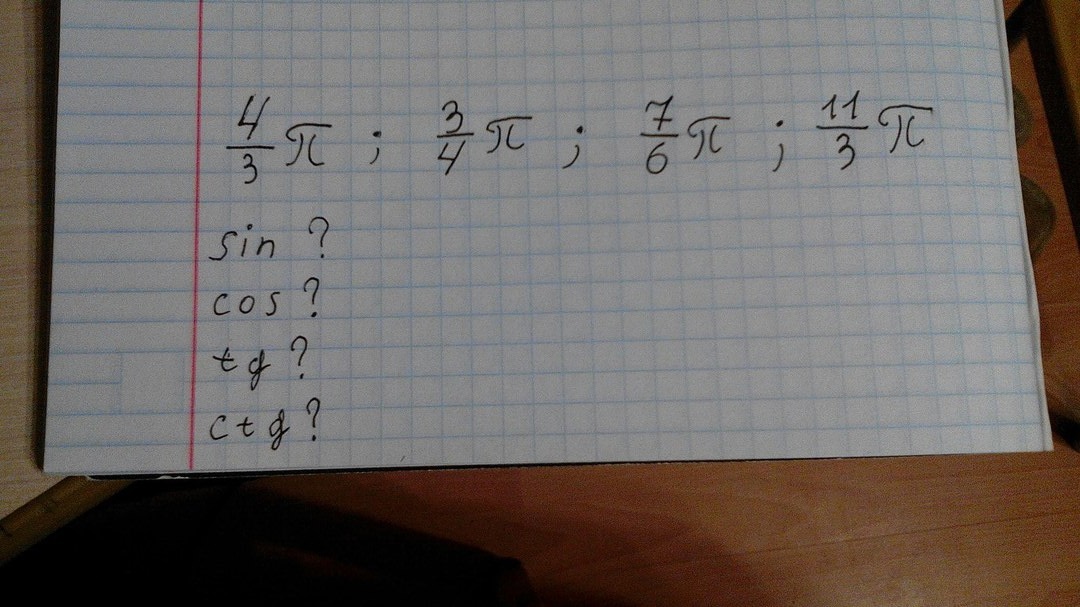 4/3 π ; 3/4 π ; 7/6 π ; 11/3 π
sin ?
cos ?
tg ?
ctg ?